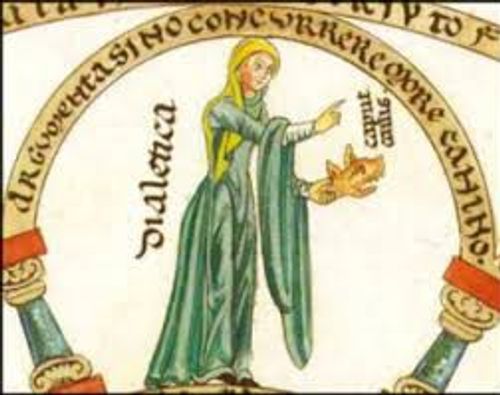 ARGVMENTA SINO CONCVRRERE MORE CANINO.
Dialetica
caput
canis.